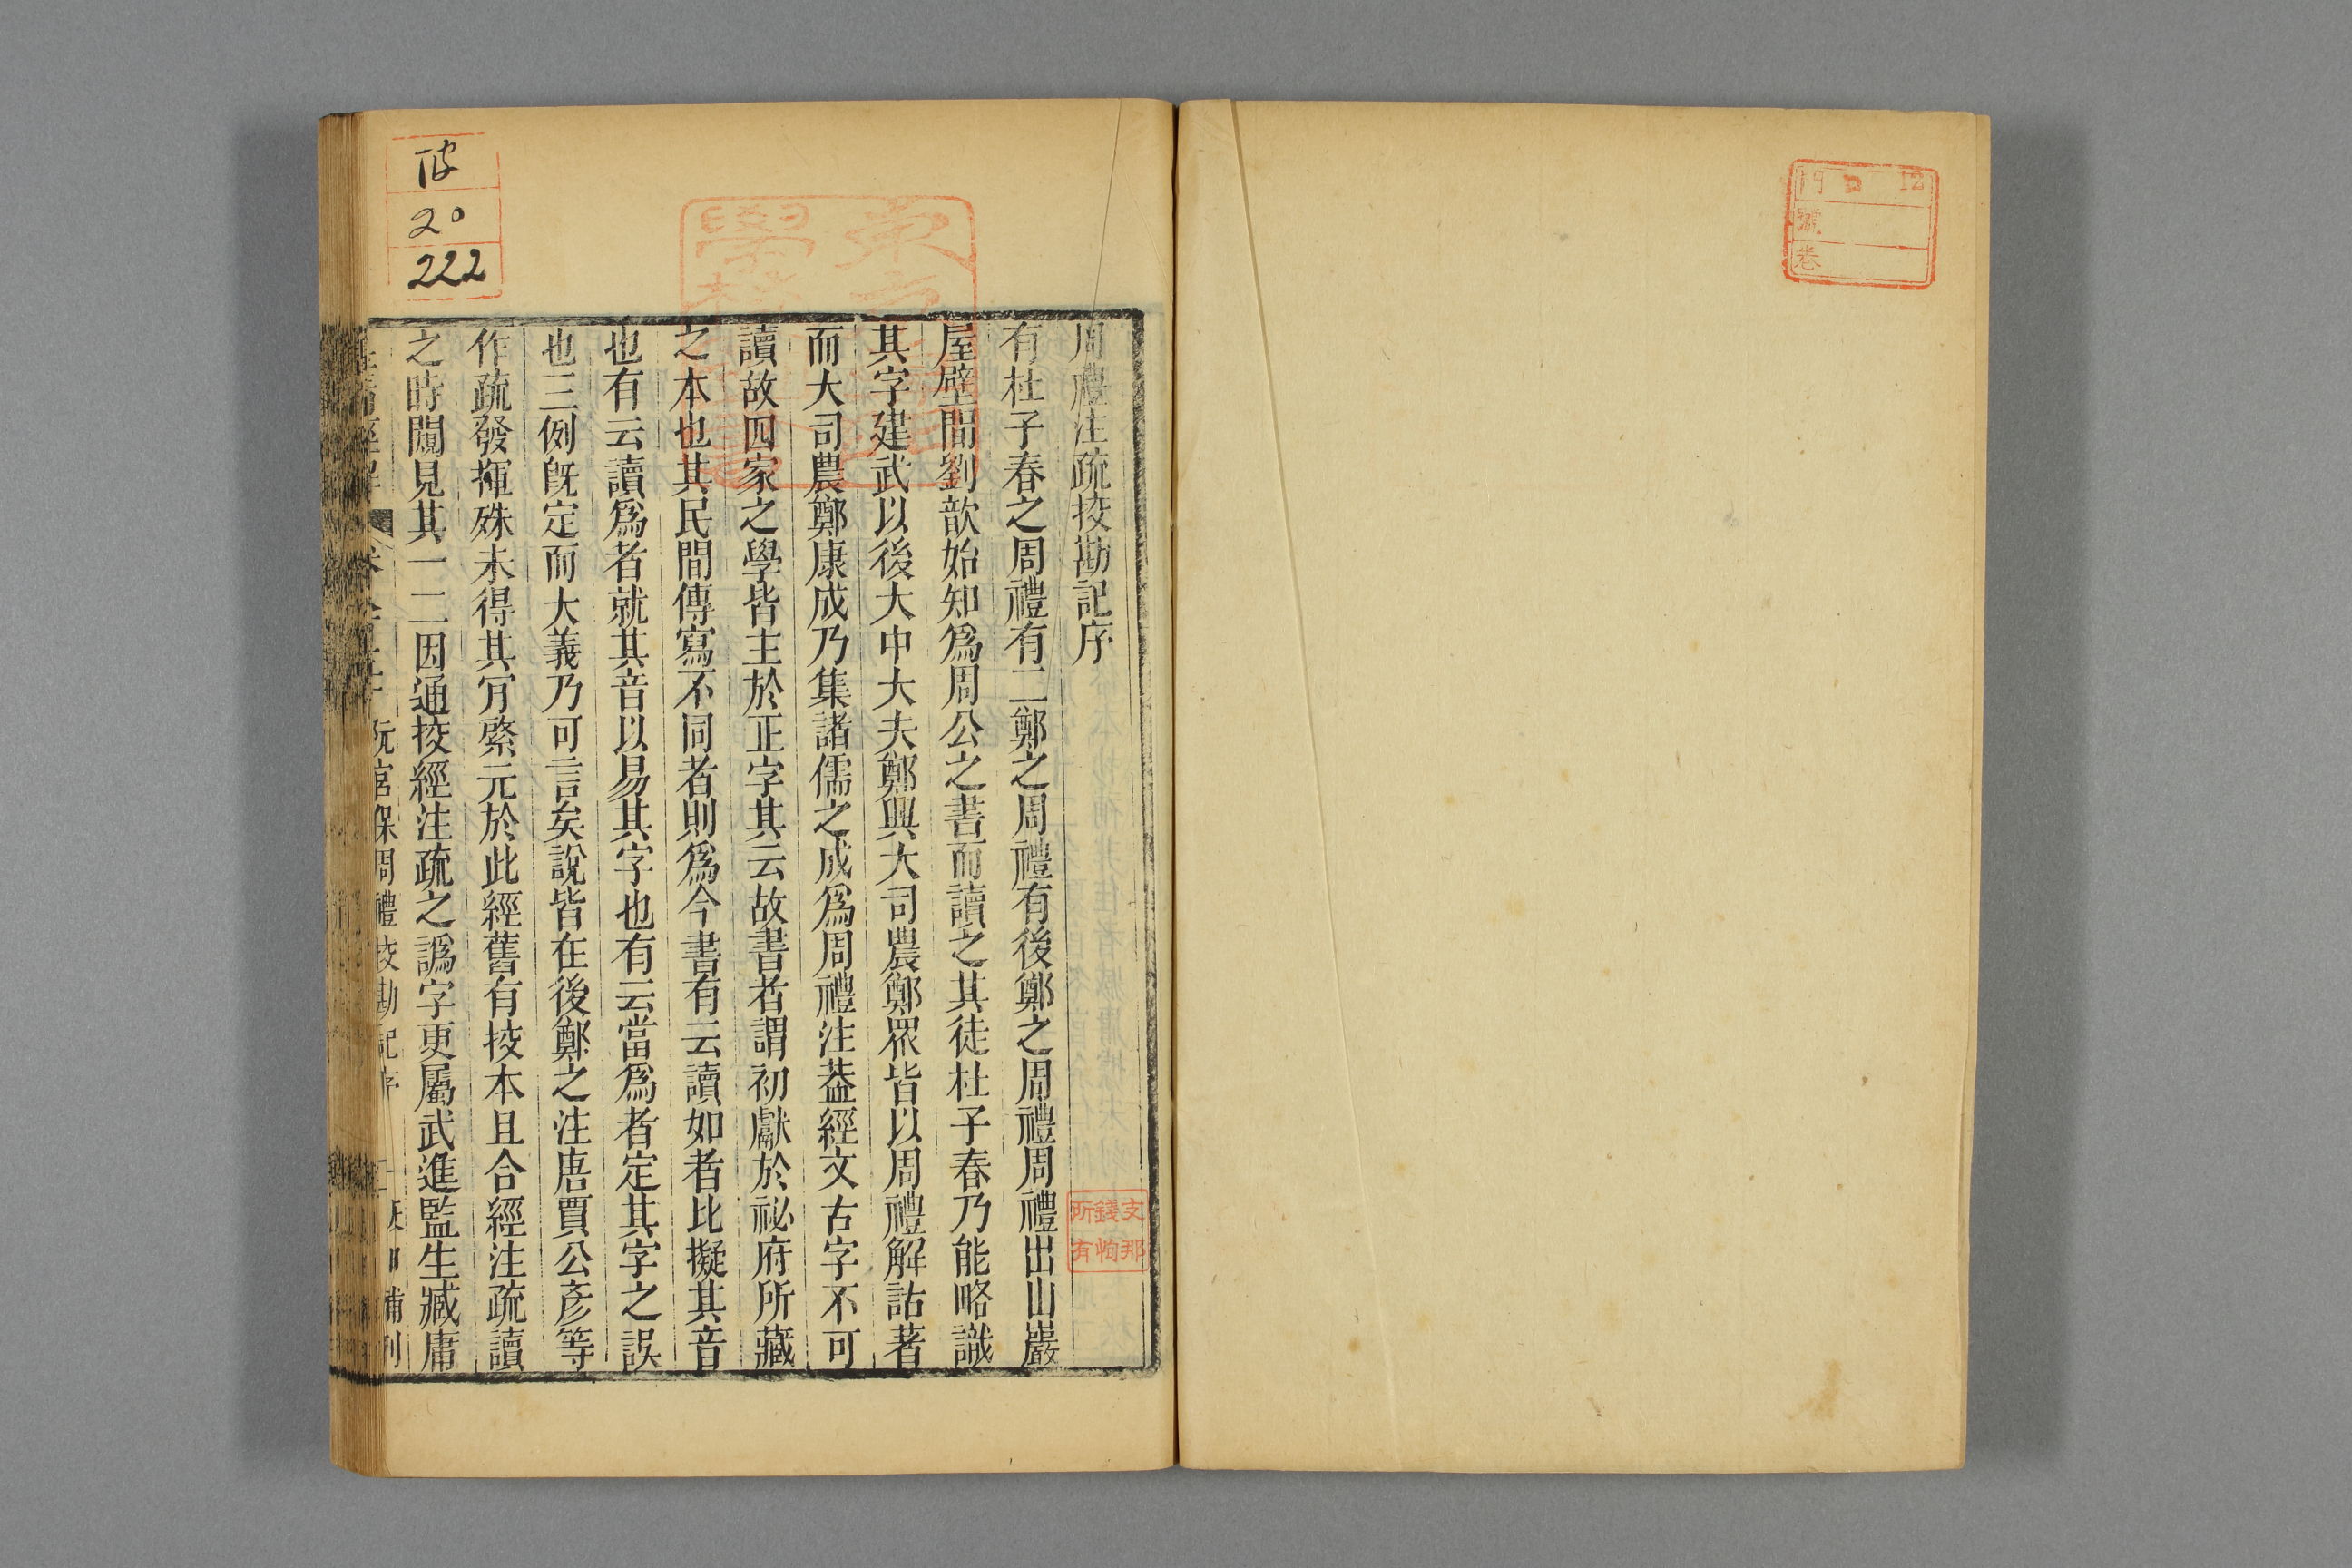 周禮注疏挍勘記序
有杜子春之周禮有二鄭之周禮有後鄭之周禮周禮出山巖
屋壁間劉歆始知爲周公之書而讀之其徒杜子春乃能略識
其字建武以後大中大夫鄭興大司農鄭眾皆以周禮解詁著
而大司農鄭康成乃集諸儒之成爲周禮注葢經文古字不可
讀故四家之學皆主於正字其云故書者謂初獻於祕府所藏
之本也其民間傳寫不同者則爲今書有云讀如者比擬其音
也有云讀爲者就其音以易其字也有云當爲者定其字之誤
也三例旣定而大義乃可言矣說皆在後鄭之注唐賈公彥等
作疏發揮殊未得其肎綮元於此經舊有挍本且合經注疏讀
之時闚見其一二因通挍經注疏之譌字更屬武進監生臧庸
皇清經解 卷 阮宮保周禮挍勘記序
補刊
支那
錢恂
所有
12
門
號
卷
20
222